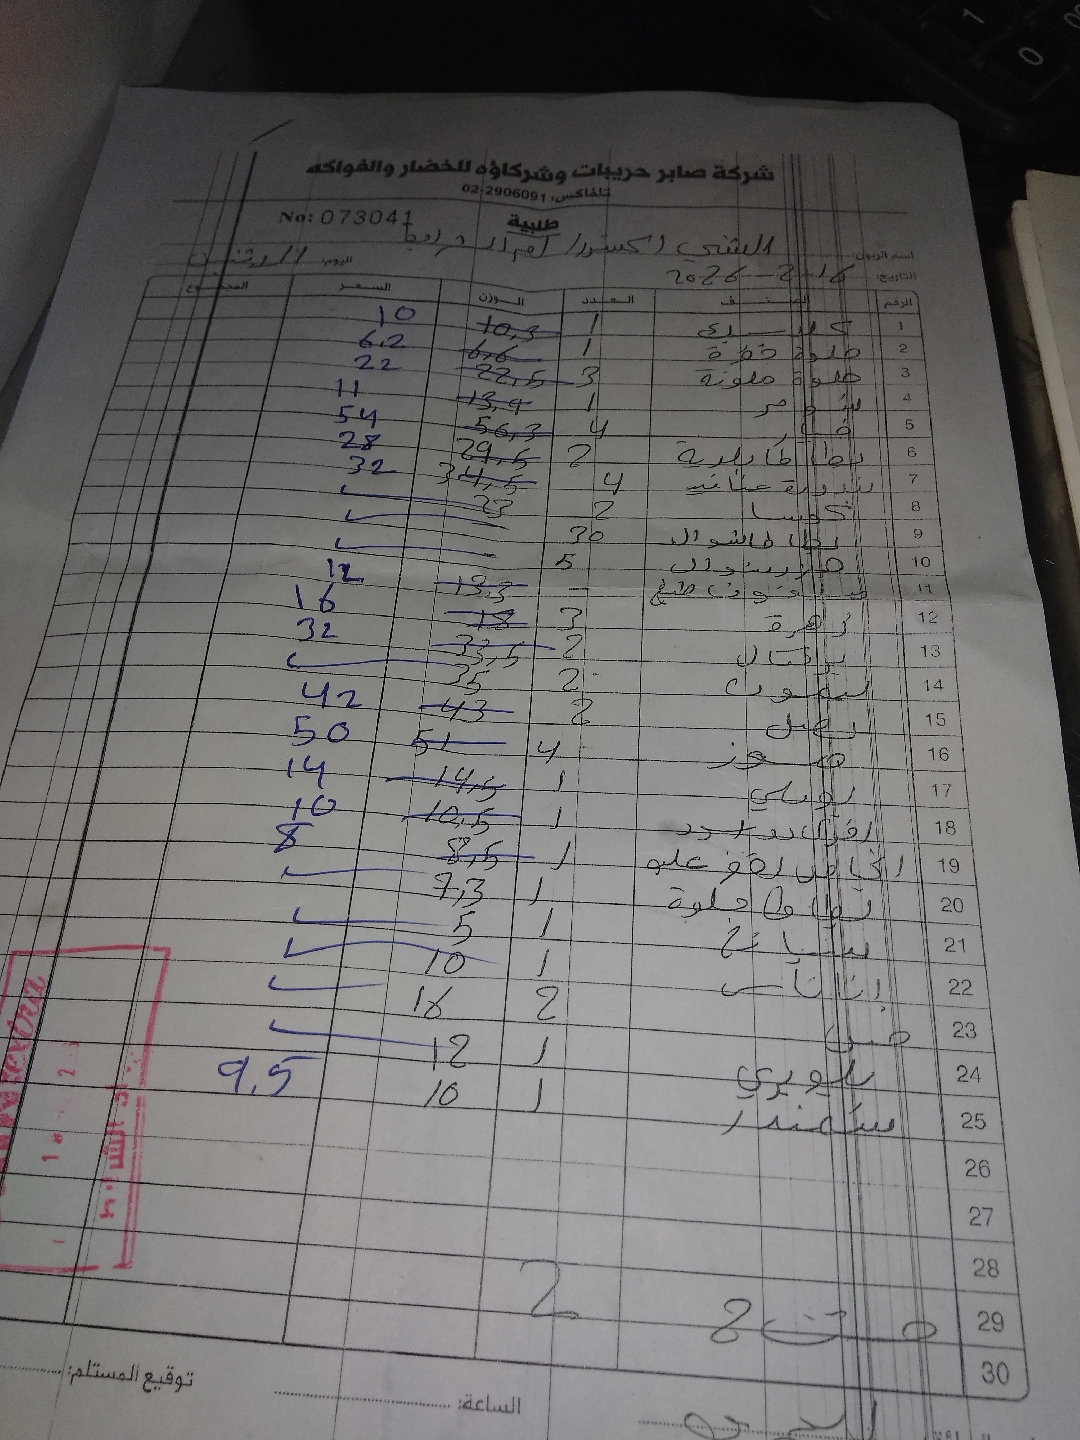 شركة صابر حريبات وشركاؤه للخضار والفواكه
تلفاكس: 02-2906091
طلبية
No: 073041
اسم الزبون: الشني اكسترا/
اليوم: الاثنين
التاريخ: 2026-2-16
الرقم الصنف العدد الوزن السعر المجموع
1 1 10,3 10
2 حلوة خضرة 1 6,6 6,2
3 حلوة ملونة 3 22,5 22
4 شومر 1 13,9 11
5 خيار 4 56,3 54
6 بطاطا بلدية 2 29,5 28
7 بندورة عناقيد 4 34,5 32
8 كوسا 2 23
9 بطاطا شوال 30
10 5
11 - 13,3 12
12 زهرة 3 18 16
13 برتقال 2 33,5 32
14 ليمون 2 35
15 بصل 2 43 42
16 موز 4 51 50
17 بوملي 1 14,5 14
18 1 10,5 10
19 1 8,5 8
20 بطاطا حلوة 1 7,3
21 سبانخ 1 5
22 اناناس 1 10
23 خس 2 16
24 1 12
25 شمندر 1 10 9,5
26
27
28
29 2
30
توقيع المستلم:
الساعة: